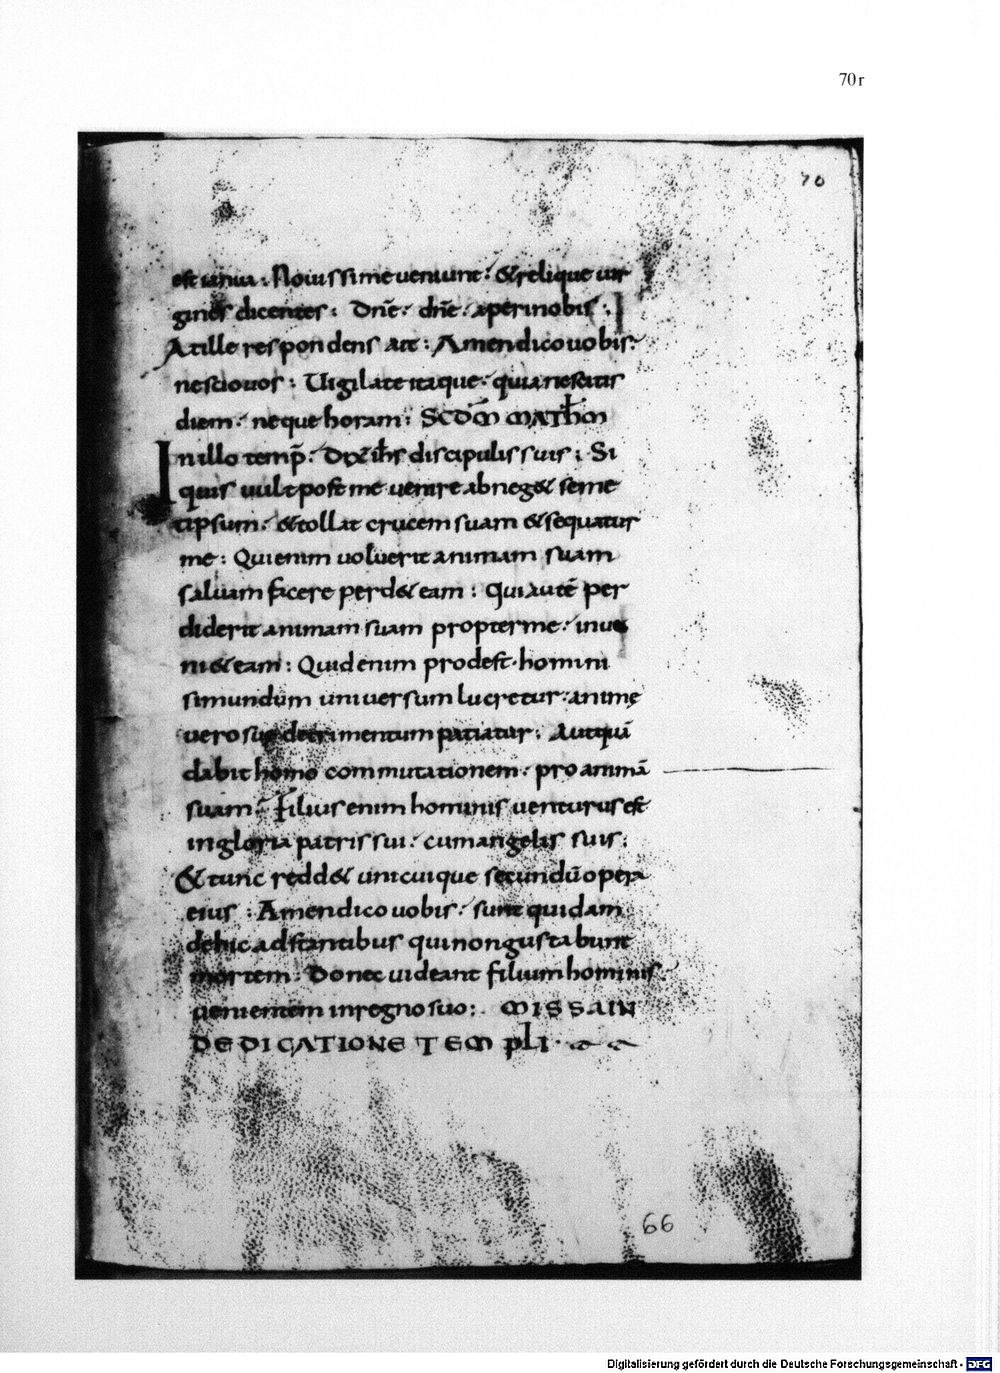 70r
70
est ianua : Nouissimeueniunt : &reliqueuir
gines dicentes : Dnē : dnē : aperinobis :
Atille respondens ait : Amendicouobis :
nesciouos : Uigilateitaque : quianescitis
diem : nequehoram : SCDM MATHM
Inillo temp̄ : Dix̄ ihs discipulissuis : Si
quis uultpostme uenire abneg& seme
tipsum : &tollat crucemsuam &sequatur
me : Quienim uoluerit animam suam
saluam facere perd&eam : Quiautē per
diderit animam suam propterme : inue
ni&eam : Quidenim prodest homini
simundum uniuersum lucretur : animę
uerosuę detrimentum patiatur : Autquā
dabithomo commutationem : proanimā
suam : Filiusenim hominis uenturusest
ingloria patrissui : cumangelis suis :
&tunc redd& unicuique secundūopera
eius : Amendicouobis : sunt quidam
dehicadstantibus quinongustabunt
mortem : Donec uideant filiumhominis
uenientem inregnosuo : MISSAIN
DEDICATIONE TEMPLI
66
Digitalisierung gefördert durch die Deutsche Forschungsgemeinschaft - DFG